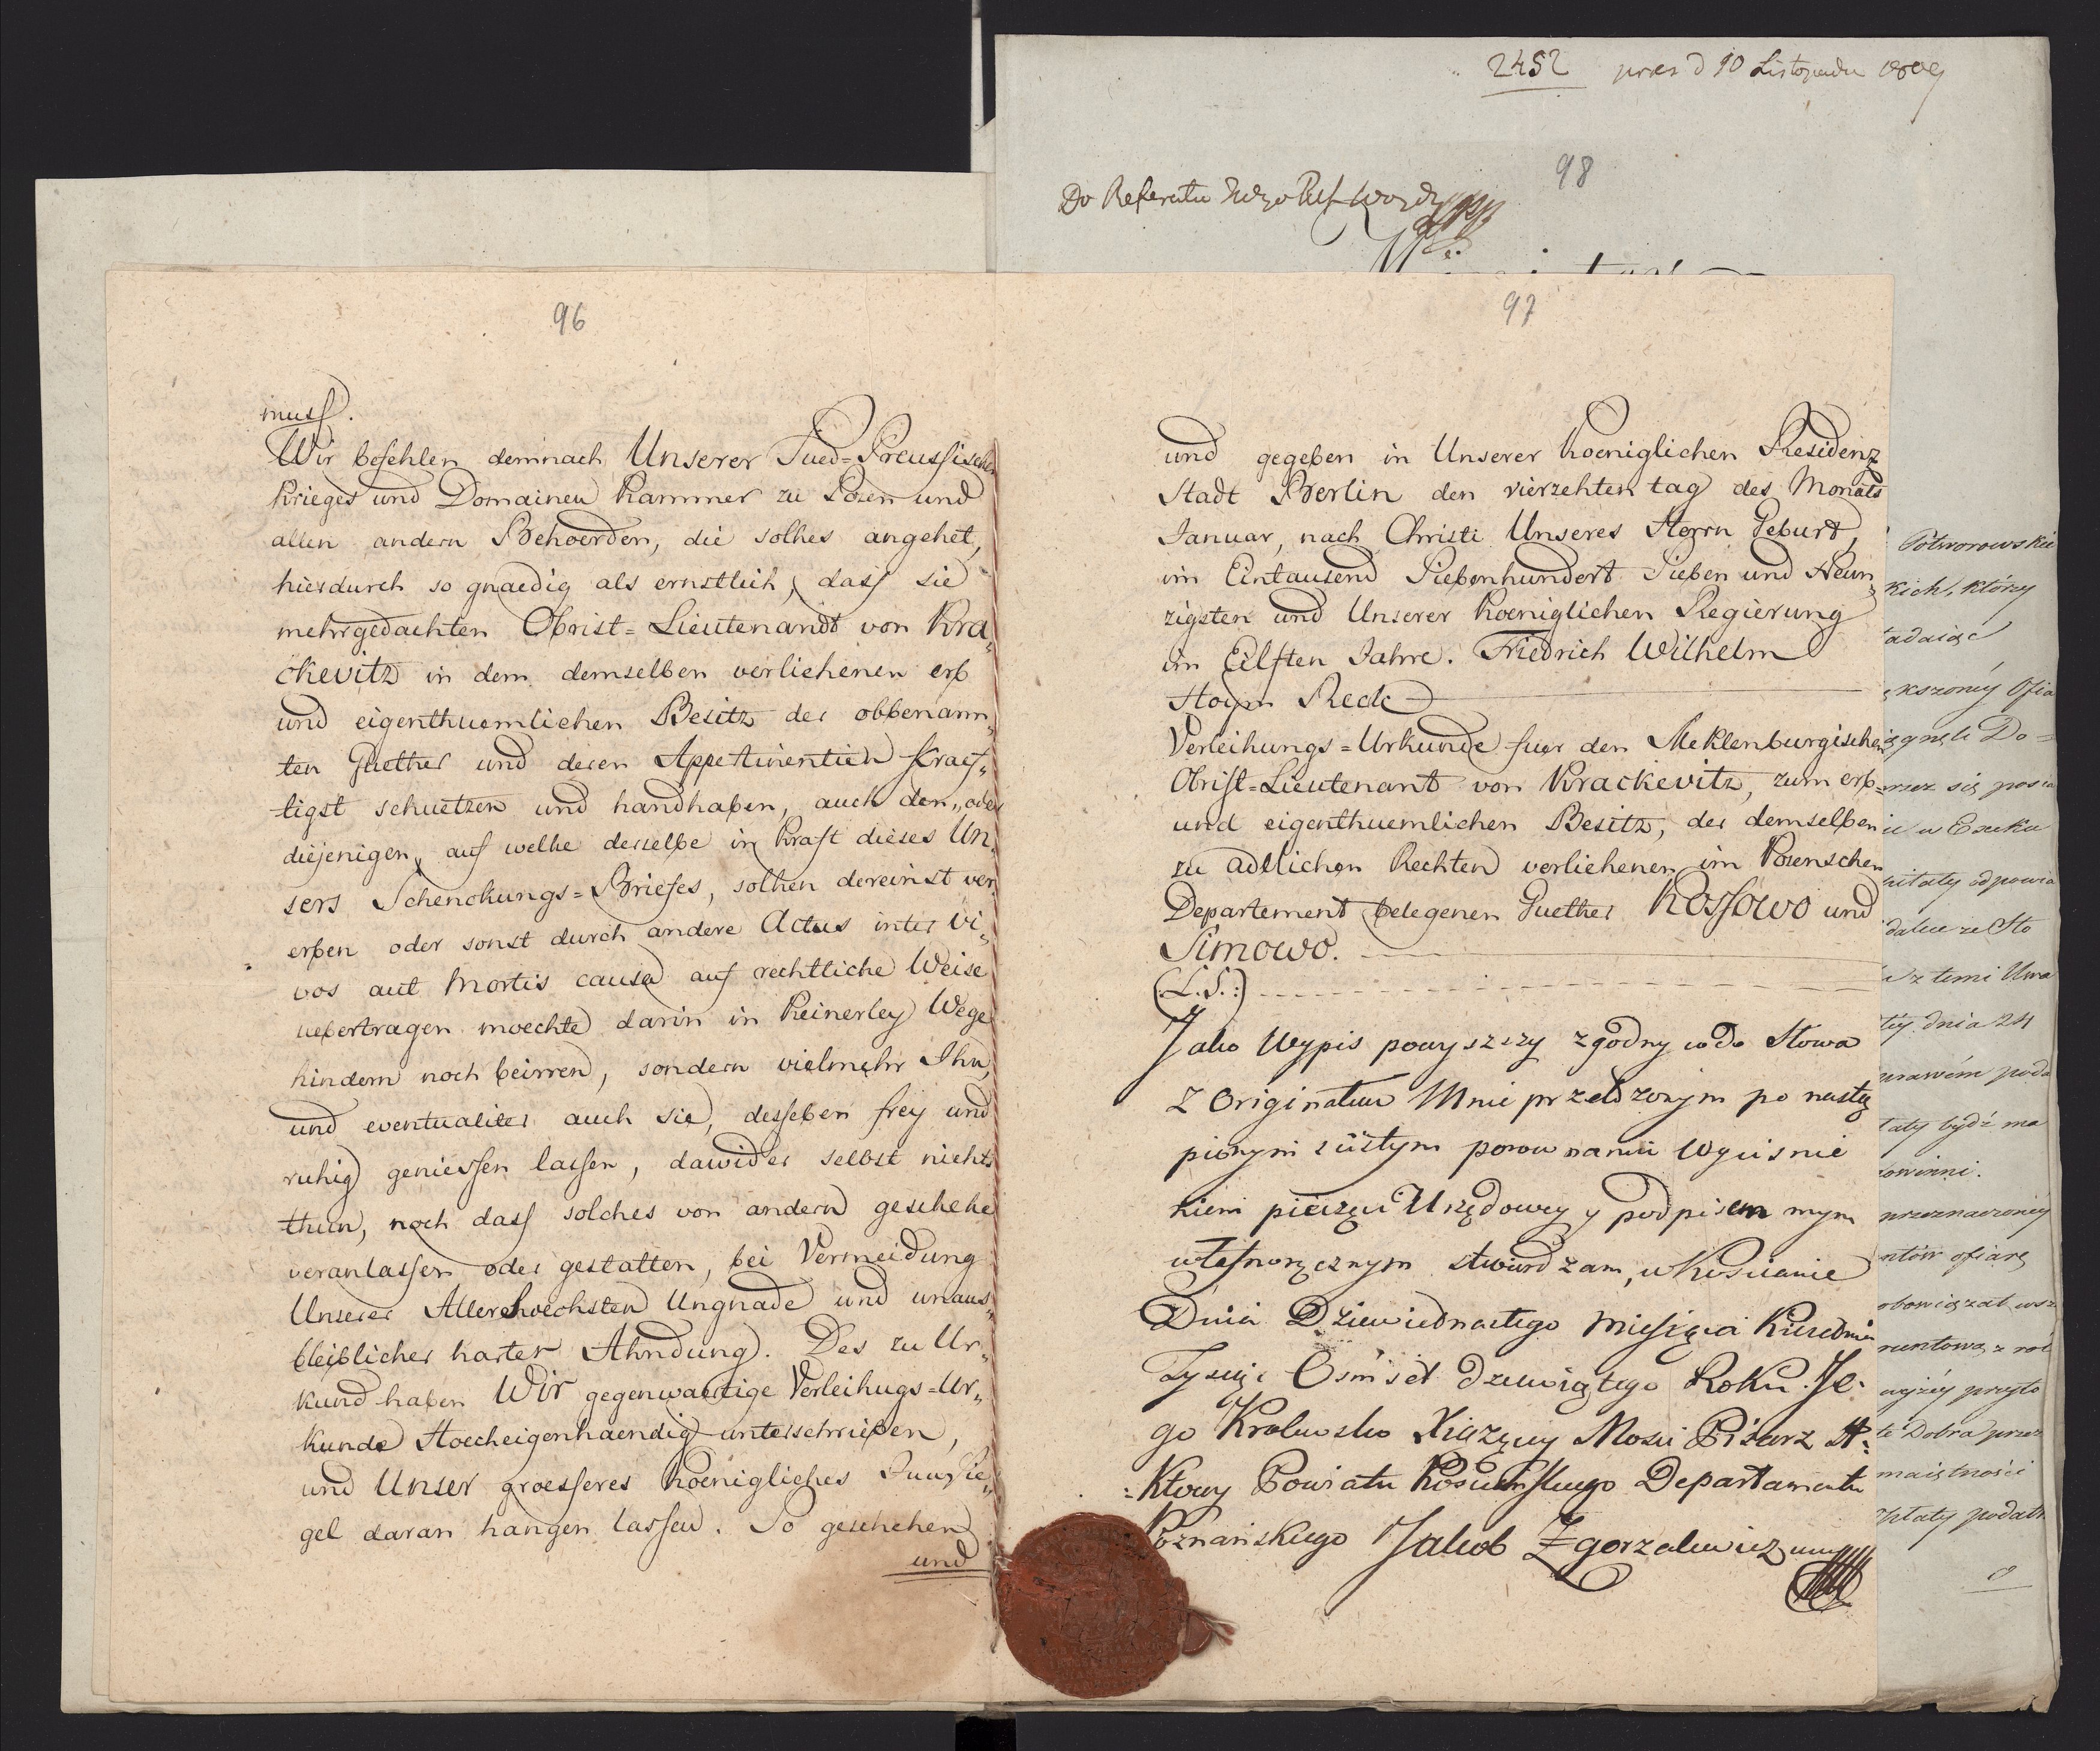 96
muss.
Wir befehlen demnach Unserer Sued=Preussischen
Krieges und Domainen Kammer zu Posen und
allen andern Behoerden, die solhes angehet,
hierdurch so gnaedig als ernstlich, dass sie
mehrgedachten Obrist=Lieutenandt von Kra„
ckevitz in dem demselben verliehenen erb
und eigenthuemlichen Besitz der obbenann„
ten Guether und deren Appertinentien kraef„
tigst schuetzen und handhaben, auch den„ oder
diejenigen, auf welhe derselbe in Kraft dieses Un„
sers Schenckungs=Briefes, solhen dereinst ver„
erben oder sonst durch andere Actus inter vi„
vos aut mortis causa auf rechtliche Weise
uebertragen moechte darin in Keinerley Wege
hindern noch beirren, sondern vielmehr Ihn,
und eventualiter auch sie, desselben frey und
ruhig geniessen lassen, dawider selbst nichts
thun, noch dass solches von andern geschehe
veranlassen oder gestatten, bei Vermeidung
Unserer Allerhoechsten Ungnade und unaus„
bleiblicher harter Ahndung. Des zu Ur„
kund haben Wir gegenwaertige Verleihugs=Ur„
kunde Hoecheigenhaendig unterschrieben,
und Unser groesseres Koenigliches Innsie„
gel daran hangen lassen. So geschehen
und
97
und gegeben in Unserer Koeniglichen Residenz
Stadt Berlin den vierzehten tag des Monats
Januar, nach Christi Unseres Herrn Geburt,
im Eintausend Siebenhundert Sieben und Neun„
zigsten und Unserer Koeniglichen Regierung
im Eilften Jahre. Friedrich Wilhelm
Hoym Reck
Verleihungs=Urkunde fuer den Meklenburgischen
Obrist=Lieutenant von Krackevitz, zum erb=
und eigenthuemlichen Besitz, der demselben
zu adelichen Rechten verliehenen im Posenschen
Departement belegenen Guether Kossowo und
Simowo.
(:L.S.:)
Jako Wypis powyszszy zgodny co do Słowa
z Originałem Mnie przełożonym po nastę
pionym scisłym porownaniu Wyciśnie
niem pieczęci Urzędowey y podpisem mym
własnoręcznym stwierdzam, w Kościanie
Dnia Dziewiednastego Miesiąca Kwietnia
Tysiąc Osmset dziewiątego Roku. Je„
go Krolewsko Xiązęcey Mosci Pisarz A„
=Ktowy Powiatu Kosciańskiego Departamentu
Poznańskiego Jakob Zgorzalewicz mp
2452 pres d 10 Listopada 1809
98
Do Referatu
Potworowskie
kich, który
ządaiąc
kszonéy Ofia
iągnęli Do=
przez się posia
w Exeku
itaty odpowia
z temi Uwa
dnia 24
prawém poda
taty bydź ma
owinni.
przeznaczonéy
ntów ofiarę
obowiązał
runtową z rol
wyżéy przyto
te Dobra przez
maiętności
płaty podatk